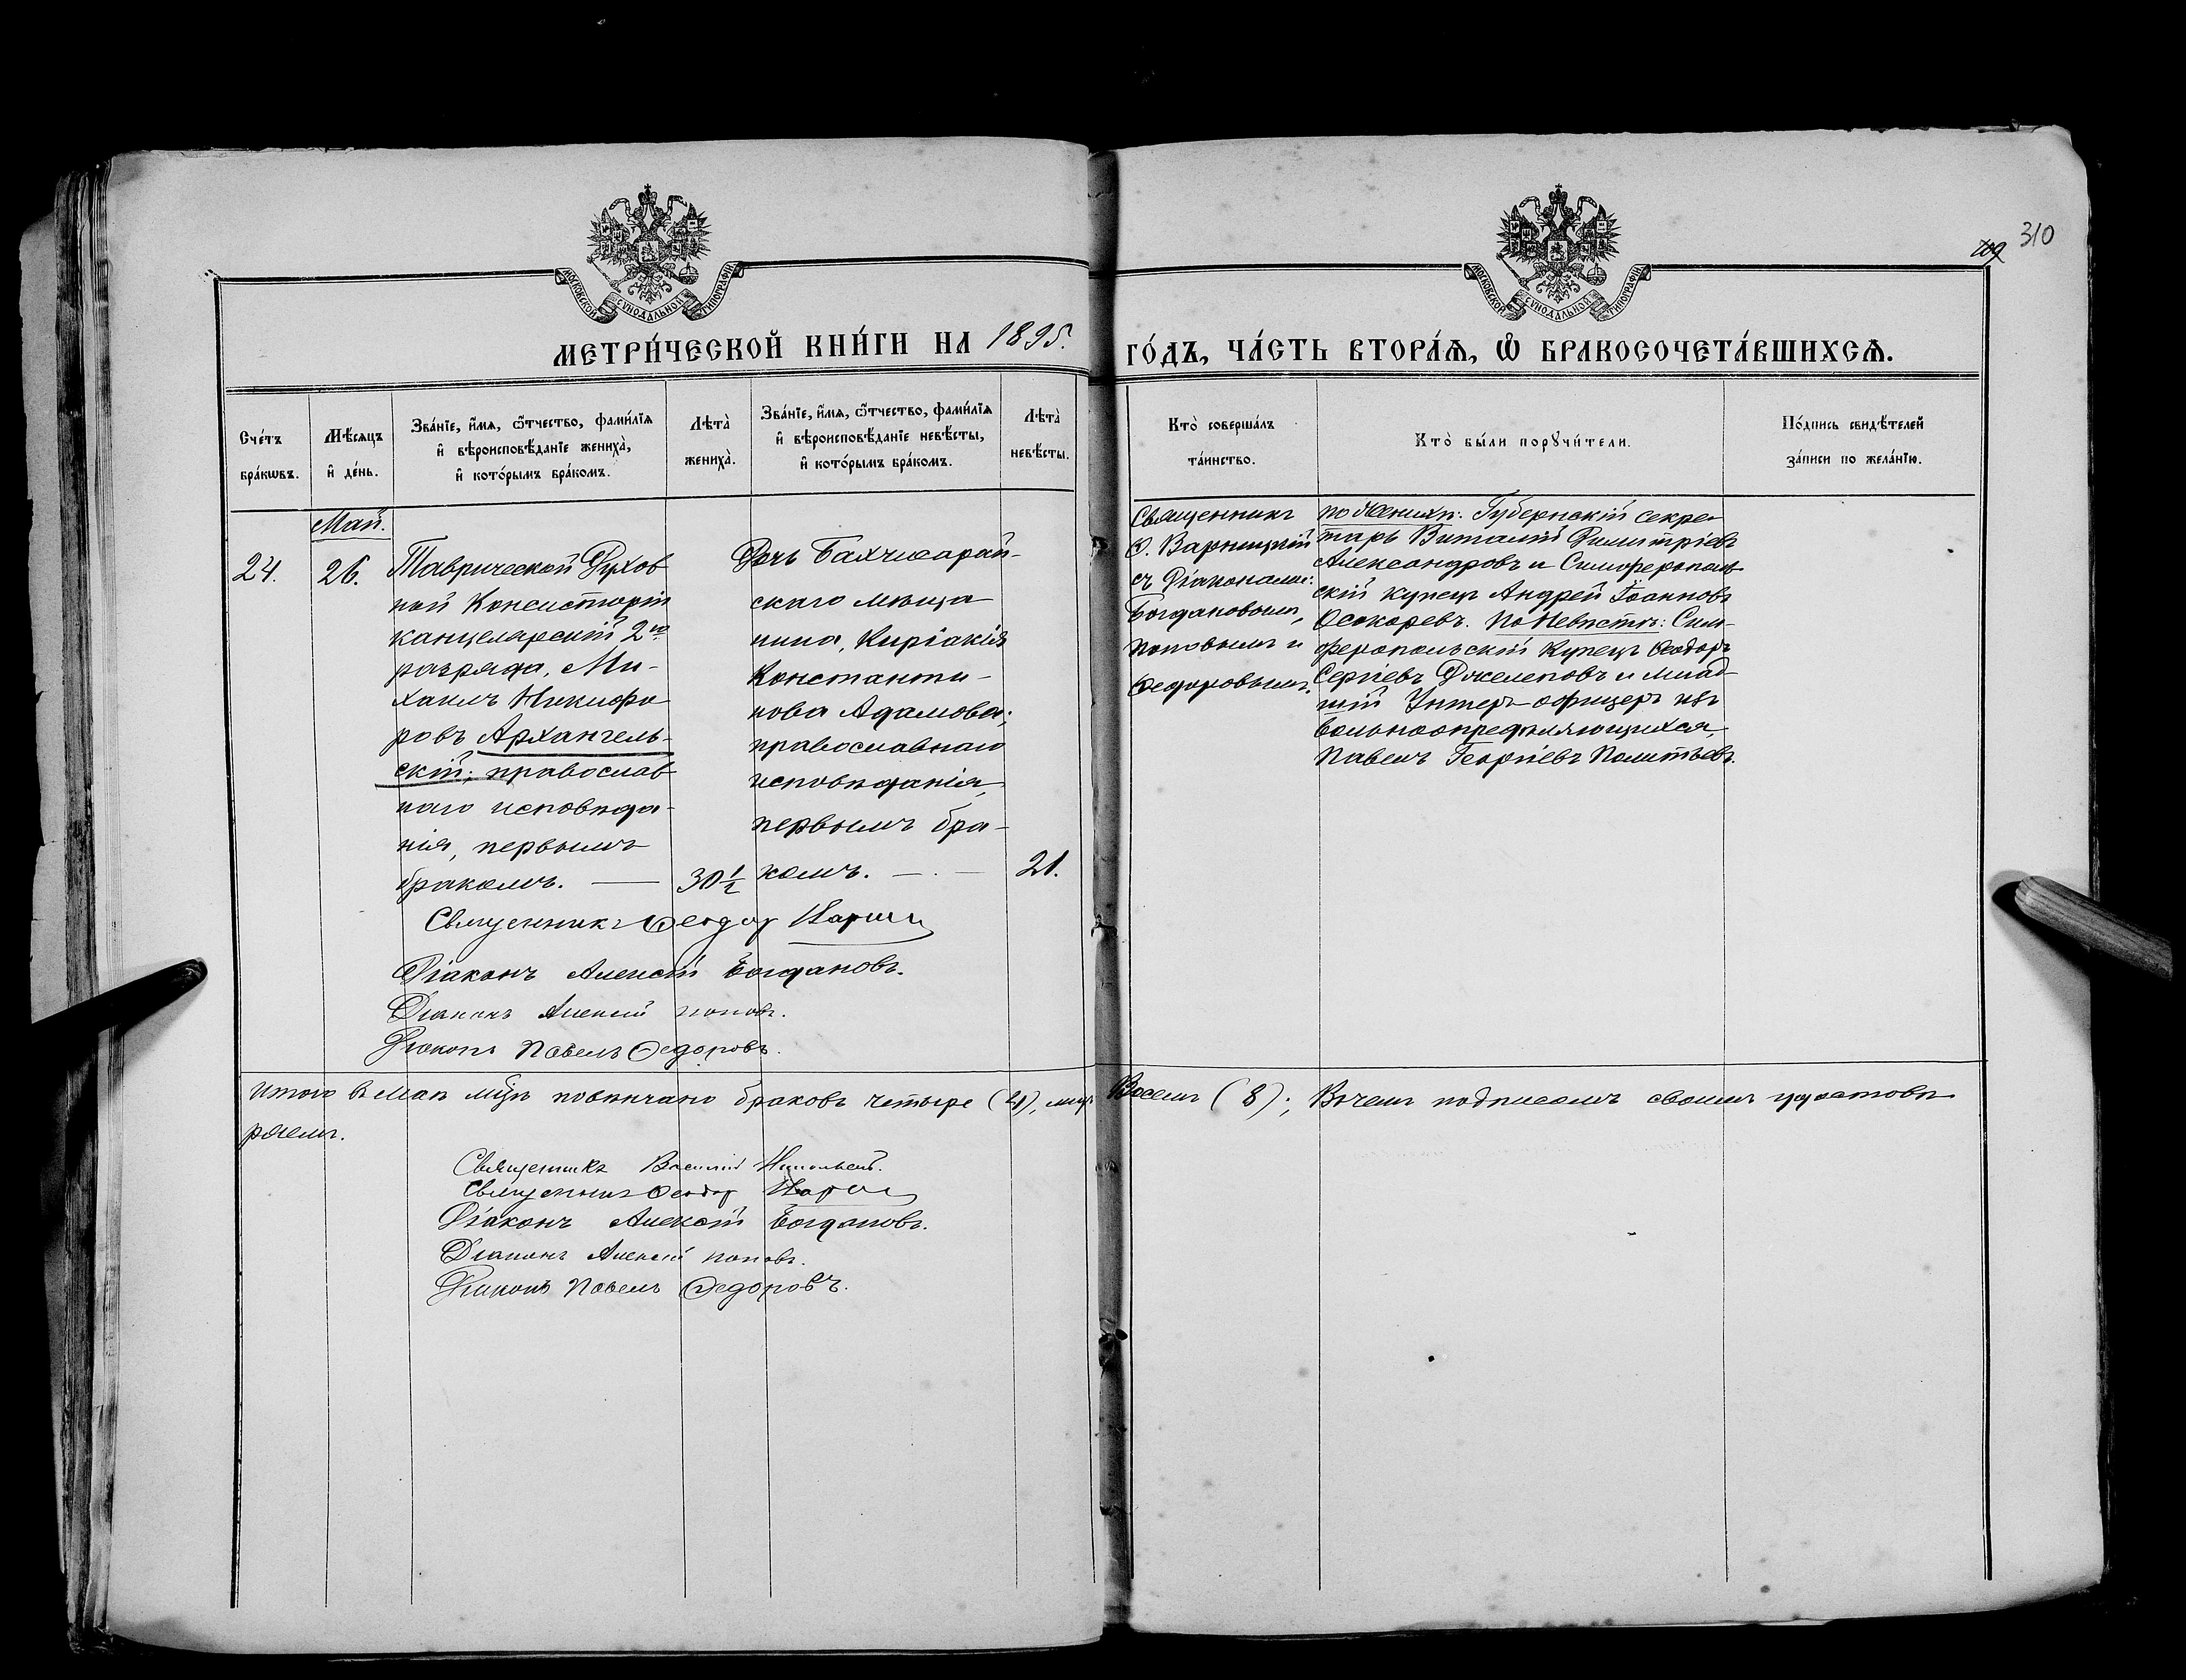 310
109
МОСКОВСКОЙ СУНОДАЛЬНОЙ ТИПОГРАФІИ
МОСКОВСКОЙ СУНОДАЛЬНОЙ ТИПОГРАФІИ
МЕТРИ́ЧЕСКОЙ КНИ́ГИ НА 1895.
ГО́ДЪ, ЧА́СТЬ ВТОРА́Ѧ, Ѽ БРАКОСОЧЕТА́ВШИХСѦ.
Сче́тъ
бра́кѡвъ.
Мѣ́сѧцъ
и҆ де́нь.
Зва́нїе, и҆́мѧ, ѻ҆́тчество, фами́лїѧ
и҆ вѣроисповѣ́данїе жениха̀,
и҆ кото́рымъ бра́комъ.
Лѣта̀
жениха̀.
Зва́нїе, и҆́мѧ, ѻ҆́тчество, фами́лїѧ
и҆ вѣроисповѣ́данїе невѣ́сты,
и҆ кото́рымъ бра́комъ.
Лѣта̀
невѣ́сты.
Кто̀ соверша́лъ
та́инство.
Кто̀ бы́ли порꙋчи́тели.
По́дпись свидѣ́телей
за́писи по жела́нїю.
24.
Май.
26.
Таврической Духов
ной Консисторіи
канцелярскій 2го
разряда, Ми-
хаилъ Никифо
ровъ Архангель-
скій; православ
наго исповѣда-
нія, первымъ
бракомъ. —
30 1/2
Дочь Бахчисарай-
скаго мѣща
нина, Киріакія
Константи-
нова Адамова;
православнаго
исповѣданія,
первымъ бра-
комъ. — . —
21.
Священникъ
Ѳ. Варницкій
съ Діаконами:
Богдановымъ,
Поповымъ и
Ѳедоровымъ.
по Женихѣ: Губернскій Секре-
тарь Виталій Димитріевъ
Александровъ и Симферополь-
скій купецъ Андрей Іоанновъ
Осокоревъ. По Невѣстѣ: Сим-
феропольскій Купецъ Ѳеодоръ
Сергіевъ Джелеповъ и млад-
шій Унтеръ-офицеръ изъ
вольноопредѣляющихся,
Павелъ Георгіевъ Политьевъ.
Священникъ Ѳеодор
Діаконъ Алексій Богдановъ.
Діаконъ Алексій Поповъ.
Діаконъ Павелъ Ѳедоровъ.
Итого въ Маѣ мцѣ повѣнчано браковъ четыре (4), лицъ Восемь (8); Въ чемъ подписомъ своимъ удостовѣ-
ряемъ.
Священникъ Василій
Священникъ Ѳеодор
Діаконъ Алексій Богдановъ.
Діаконъ Алексій Поповъ.
Діаконъ Павелъ Ѳедоровъ.